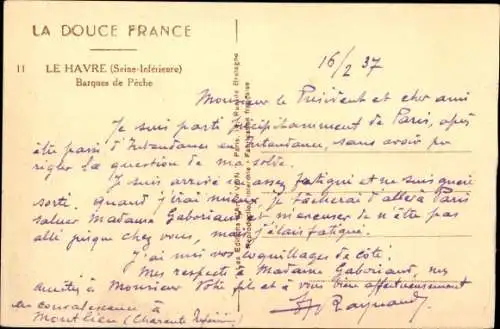 LA DOUCE FRANCE
11 LE HAVRE (Seine-Inférieure)
Barques de Pêche
16/2 37
Monsieur le Président et cher ami
Je suis parti précipitamment de Paris, après
être passé d'Intendance en Intendance, sans avoir pu
régler la question de ma solde.
Je suis arrivé assez fatigué et ne suis guère
sorti. Quand j'irai mieux, je tâcherai d'aller à Paris
saluer Madame Gaboriaud et m'excuser de n'être pas
allé jusque chez vous, mais j'étais fatigué.
J'ai mis vos coquillages de côté.
Mes respects à Madame Gaboriaud, mes
amitiés à Monsieur Votre fils et à vous bien affectueusement
Raynaud
en convalescence à
Montlieu (Charente Inférieure)